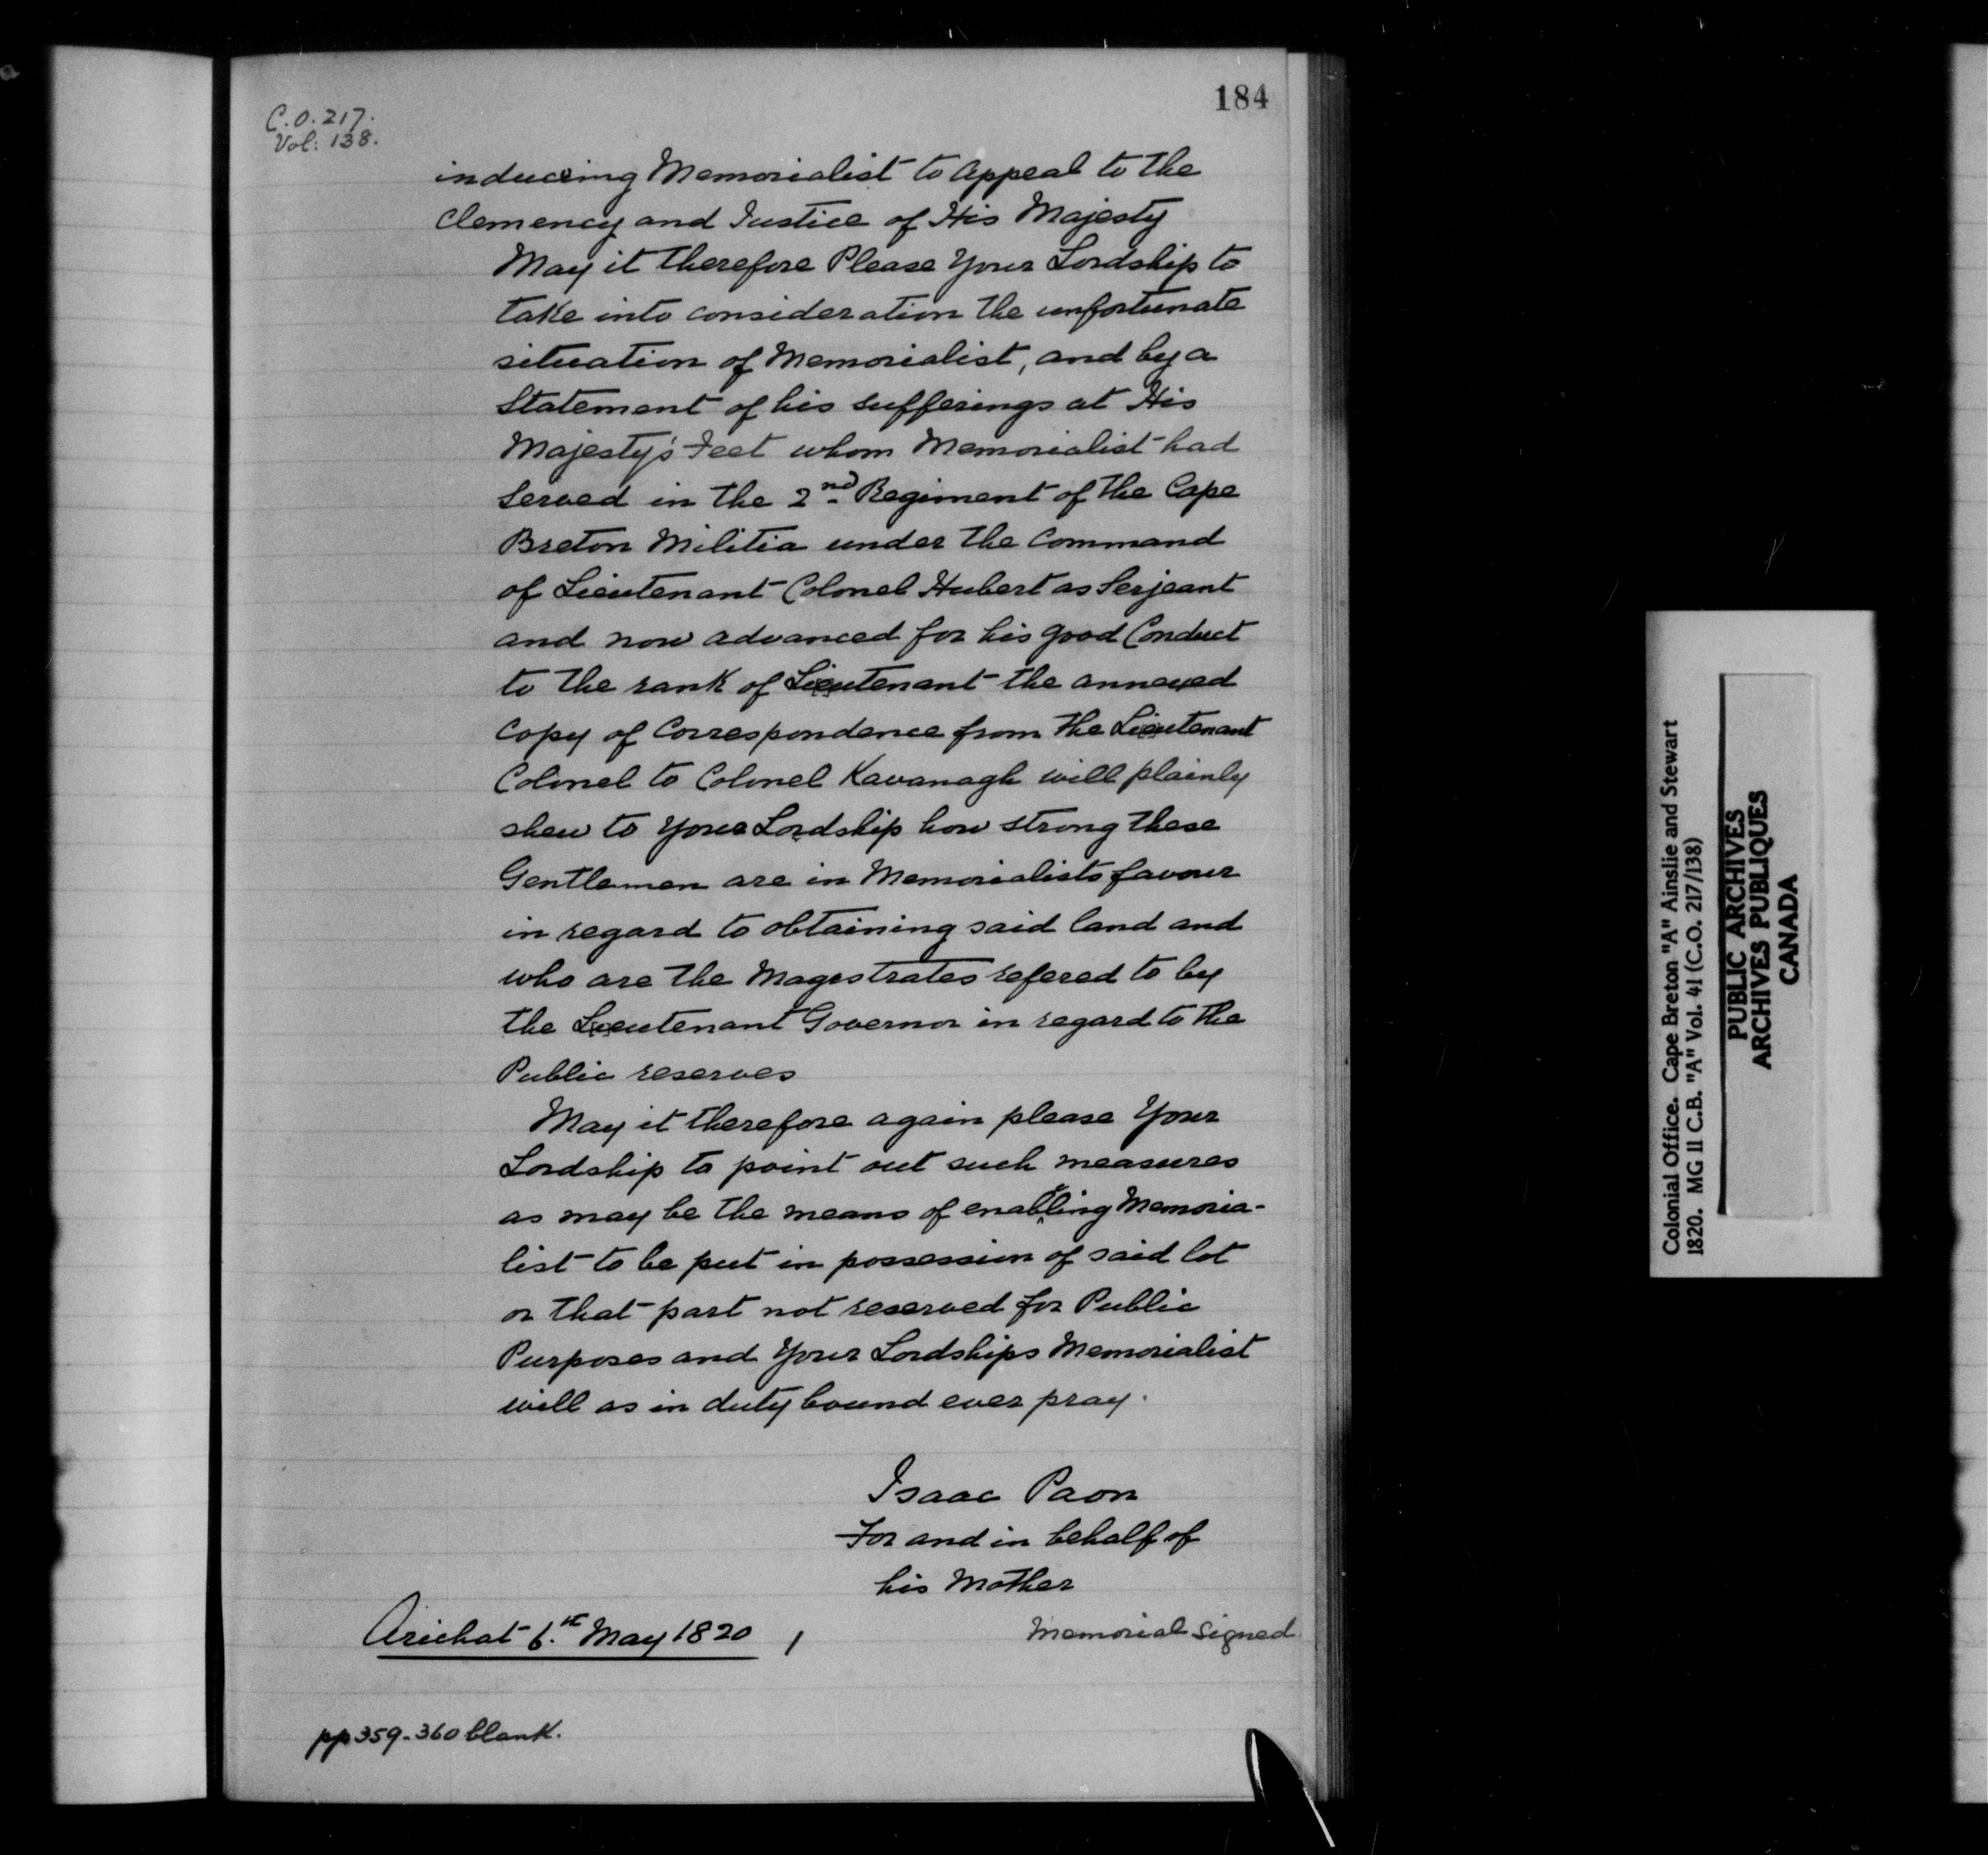 184
C.O. 217.
Vol: 138.
inducing Memorialist to Appeal to the
Clemency and Justice of His Majesty
May it therefore Please Your Lordship to
take into consideration the unfortunate
situation of Memorialist, and by a
Statement of his sufferings at His
Majesty's Feet whom Memorialist had
Served in the 2nd Regiment of the Cape
Breton Militia under the Command
of Lieutenant Colonel Hubert as Serjeant
and now advanced for his good Conduct
to the rank of Lieutenant the annexed
Copy of Correspondence from the Lieutenant
Colonel to Colonel Kavanagh will plainly
shew to Your Lordship how strong these
Gentlemen are in Memorialists favour
in regard to obtaining said land and
who are the Magistrates refered to by
the Lieutenant Governor in regard to the
Public reserves
May it therefore again please Your
Lordship to point out such measures
as may be the means of enabling Memoria-
list to be put in possession of said lot
or that part not reserved for Public
Purposes and Your Lordships Memorialist
will as in duty bound ever pray.
Isaac Paon
For and in behalf of
his Mother
Memorial signed
Arichat 6.th May 1820
pp 359-360 blank.
Colonial Office. Cape Breton "A" Ainslie and Stewart
1820. MG 11 C.B. "A" Vol. 41 (C.O. 217/138)
PUBLIC ARCHIVES
ARCHIVES PUBLIQUES
CANADA